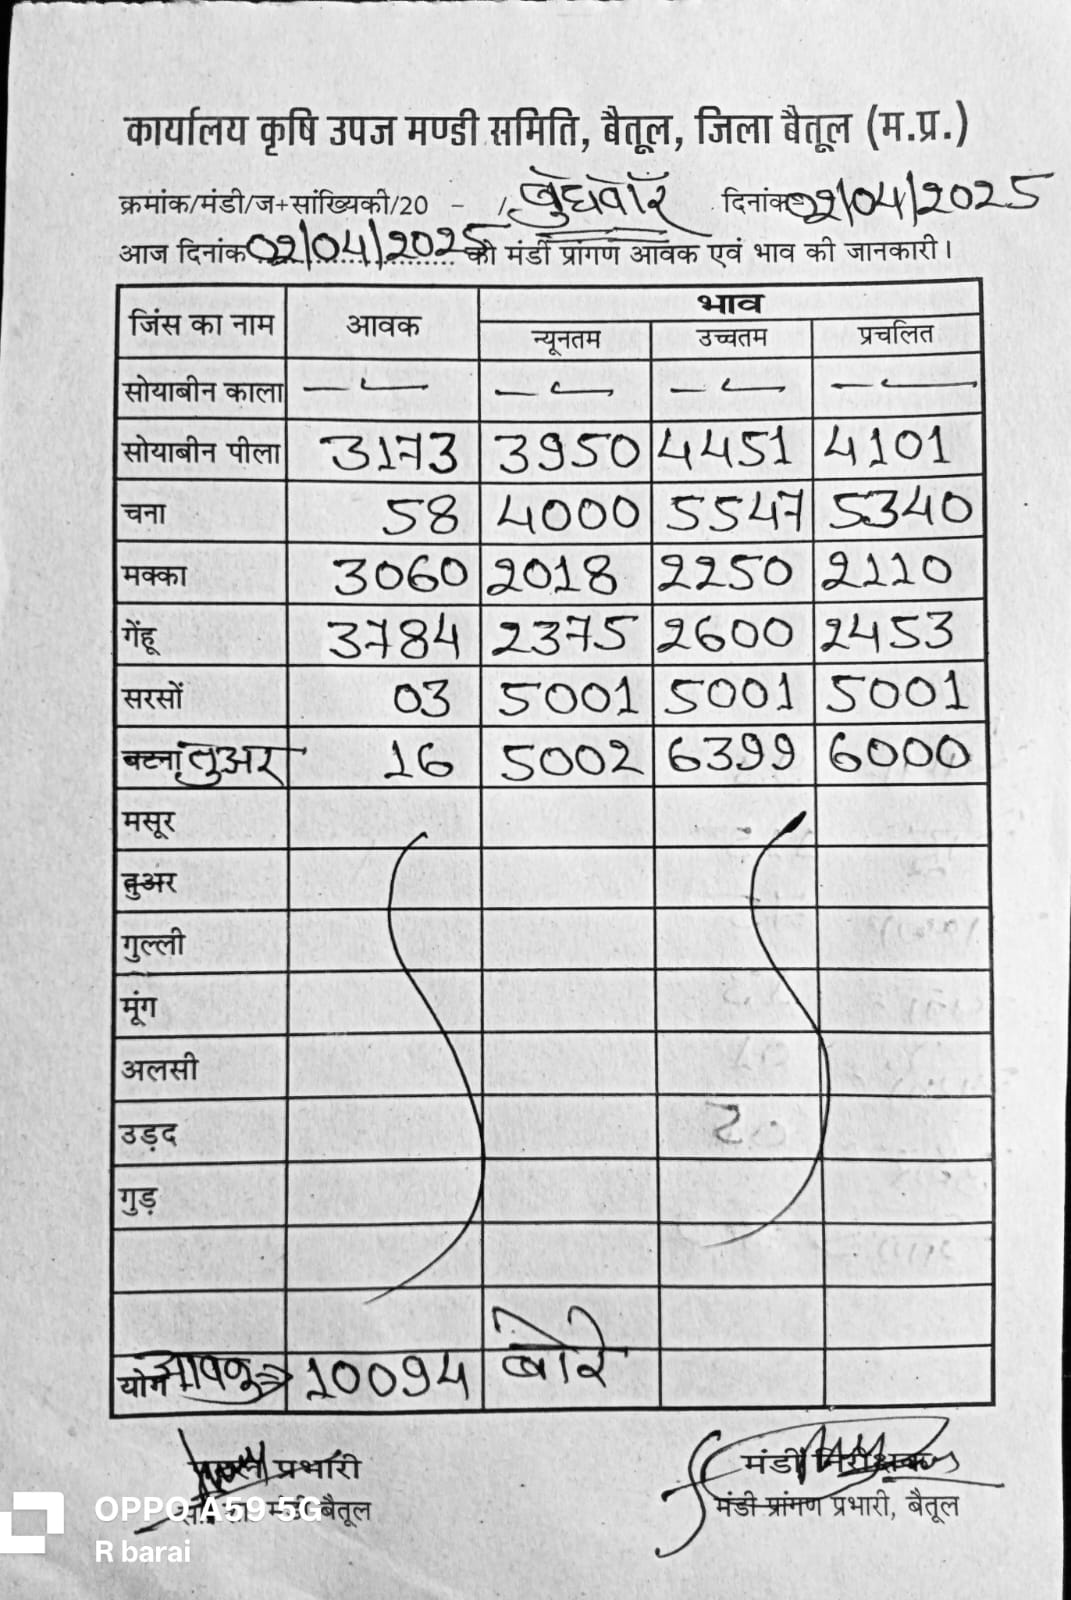 कार्यालय कृषि उपज मण्डी समिति, बैतूल, जिला बैतूल (म.प्र.)
क्रमांक/मंडी/ज+सांख्यिकी/20 - / बुधवार दिनांक 02/04/2025
आज दिनांक 02/04/2025 को मंडी प्रांगण आवक एवं भाव की जानकारी।
जिंस का नाम आवक भाव
न्यूनतम उच्चतम प्रचलित
सोयाबीन काला — — — —
सोयाबीन पीला 3173 3950 4451 4101
चना 58 4000 5547 5340
मक्का 3060 2018 2250 2110
गेंहू 3784 2375 2600 2453
सरसों 03 5001 5001 5001
बटना तुअर 16 5002 6399 6000
मसूर
तुअर
गुल्ली
मूंग
अलसी
उड़द
गुड़
योग आवक 10094 बोरे
प्रभारी मंडी निरीक्षक
मंडी बैतूल मंडी प्रांगण प्रभारी, बैतूल
OPPO A59 5G
R barai